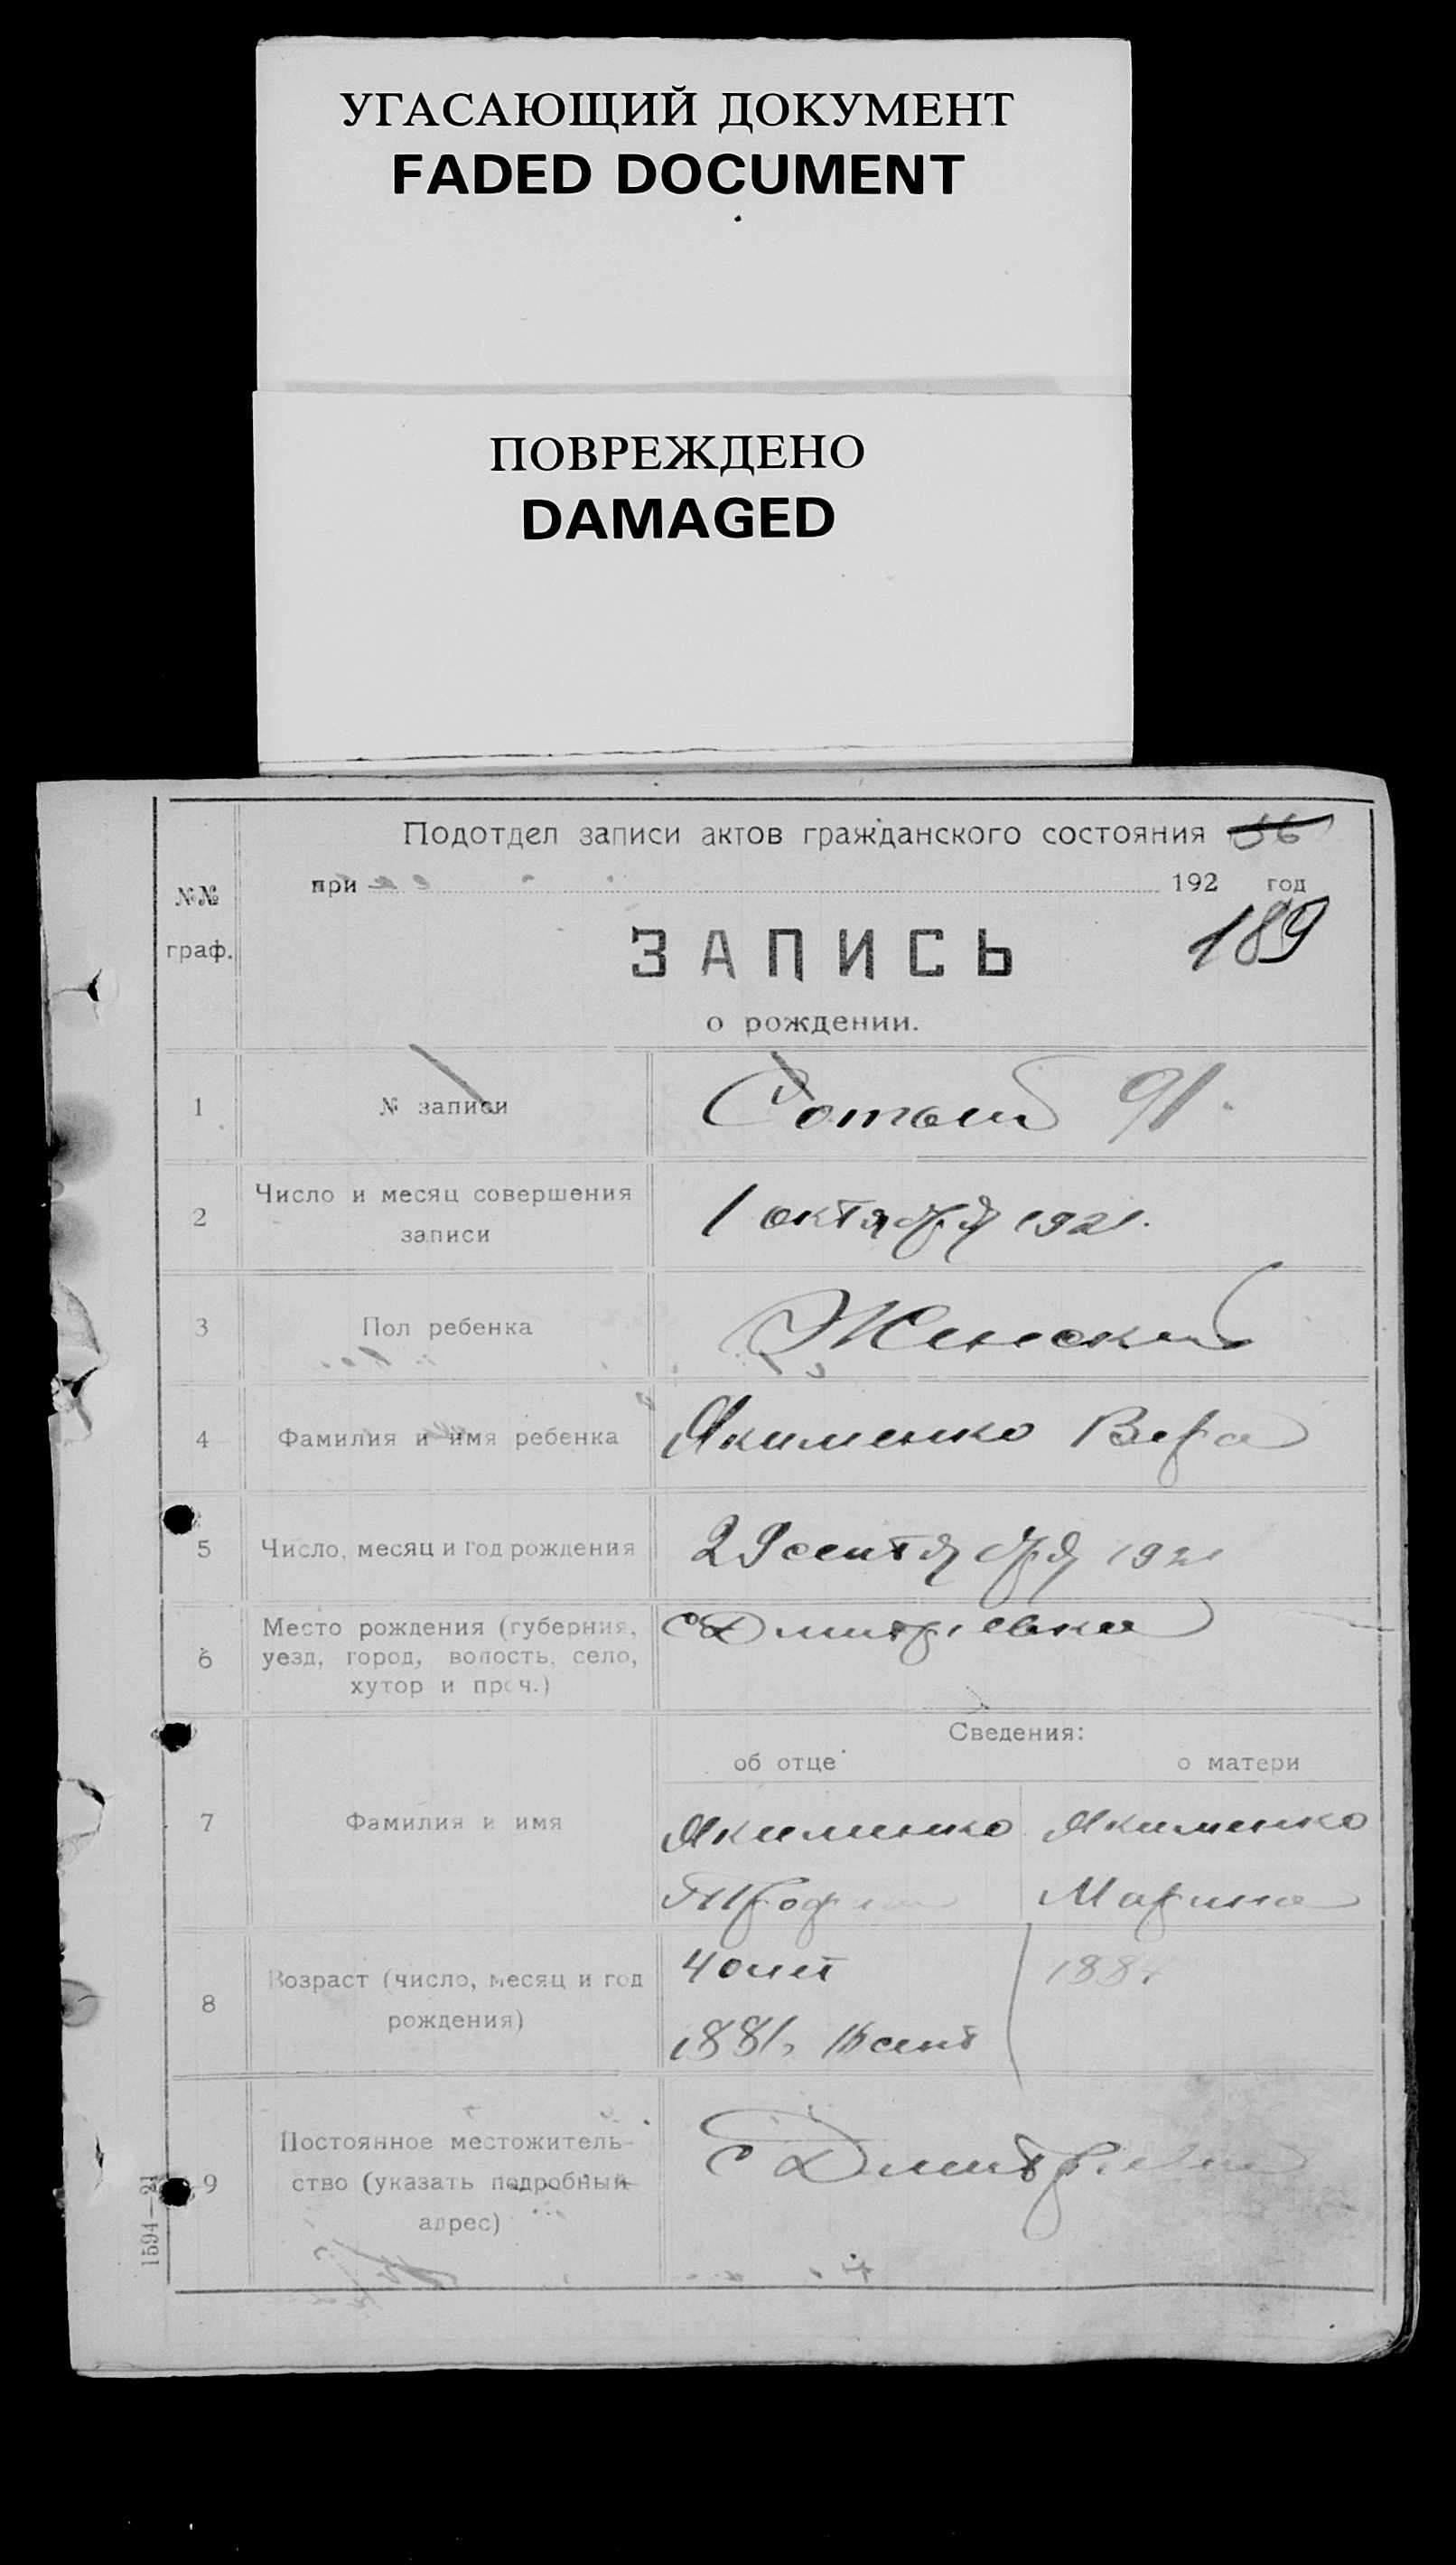 УГАСАЮЩИЙ ДОКУМЕНТ
FADED DOCUMENT
ПОВРЕЖДЕНО
DAMAGED
Подотдел записи актов гражданского состояния 56
при 192 год
№№ граф.
189
ЗАПИСЬ
о рождении.
1 № записи Сотый 91.
2 Число и месяц совершения
записи
1 октября 1921.
3 Пол ребенка Женский
4 Фамилия и имя ребенка Якименко Вера
5 Число, месяц и год рождения 29 сентября 1921
6 Место рождения (губерния,
уезд, город, волость, село,
хутор и проч.)
с Дмитриевка
Сведения:
об отце о матери
7 Фамилия и имя
Якименко Якименко
Трофим Марина
8 Возраст (число, месяц и год
рождения)
40 лет 1884
1881, сент
9 Постоянное местожитель-
ство (указать подробный
адрес)
с Дмитриевка
1594—21